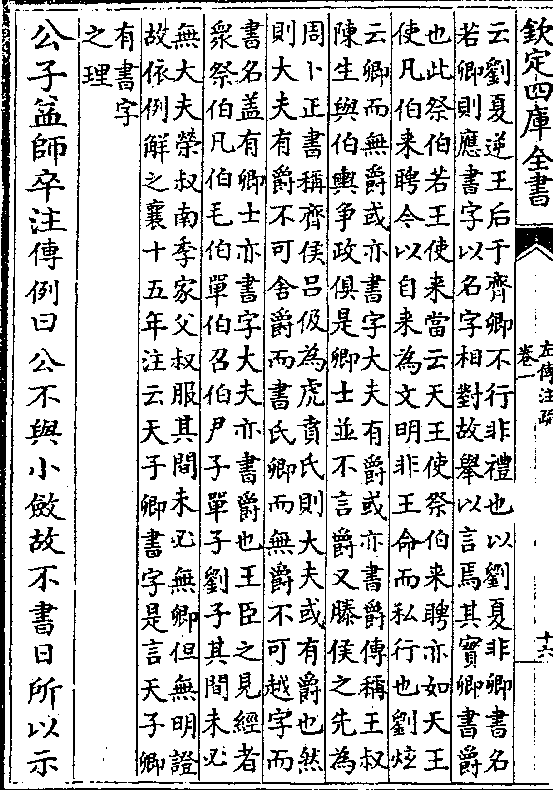 欽定四庫全書
左傳注疏
卷一
十六
云劉夏逆王后于齊卿不行非禮也以劉夏非卿書名
若卿則應書字以名字相對故舉以言焉其實卿書爵
也此祭伯若王使来當云天王使祭伯来聘亦如天王
使凡伯来聘今以自来為文明非王命而私行也劉炫
云卿而無爵或亦書字大夫有爵或亦書爵傳稱王叔
陳生與伯輿爭政俱是卿士並不言爵又滕侯之先為
周卜正書稱齊侯吕伋為虎賁氏則大夫或有爵也然
則大夫有爵不可舍爵而書氏卿而無爵不可越字而
書名盖有卿士亦書字大夫亦書爵也王臣之見經者
衆祭伯凡伯毛伯單伯召伯尹子單子劉子其間未必
無大夫榮叔南季家父叔服其間未必無卿但無明證
故依例解之襄十五年注云天子卿書字是言天子卿
有書字
之理
公子益師卒注傳例曰公不與小斂故不書日所以示